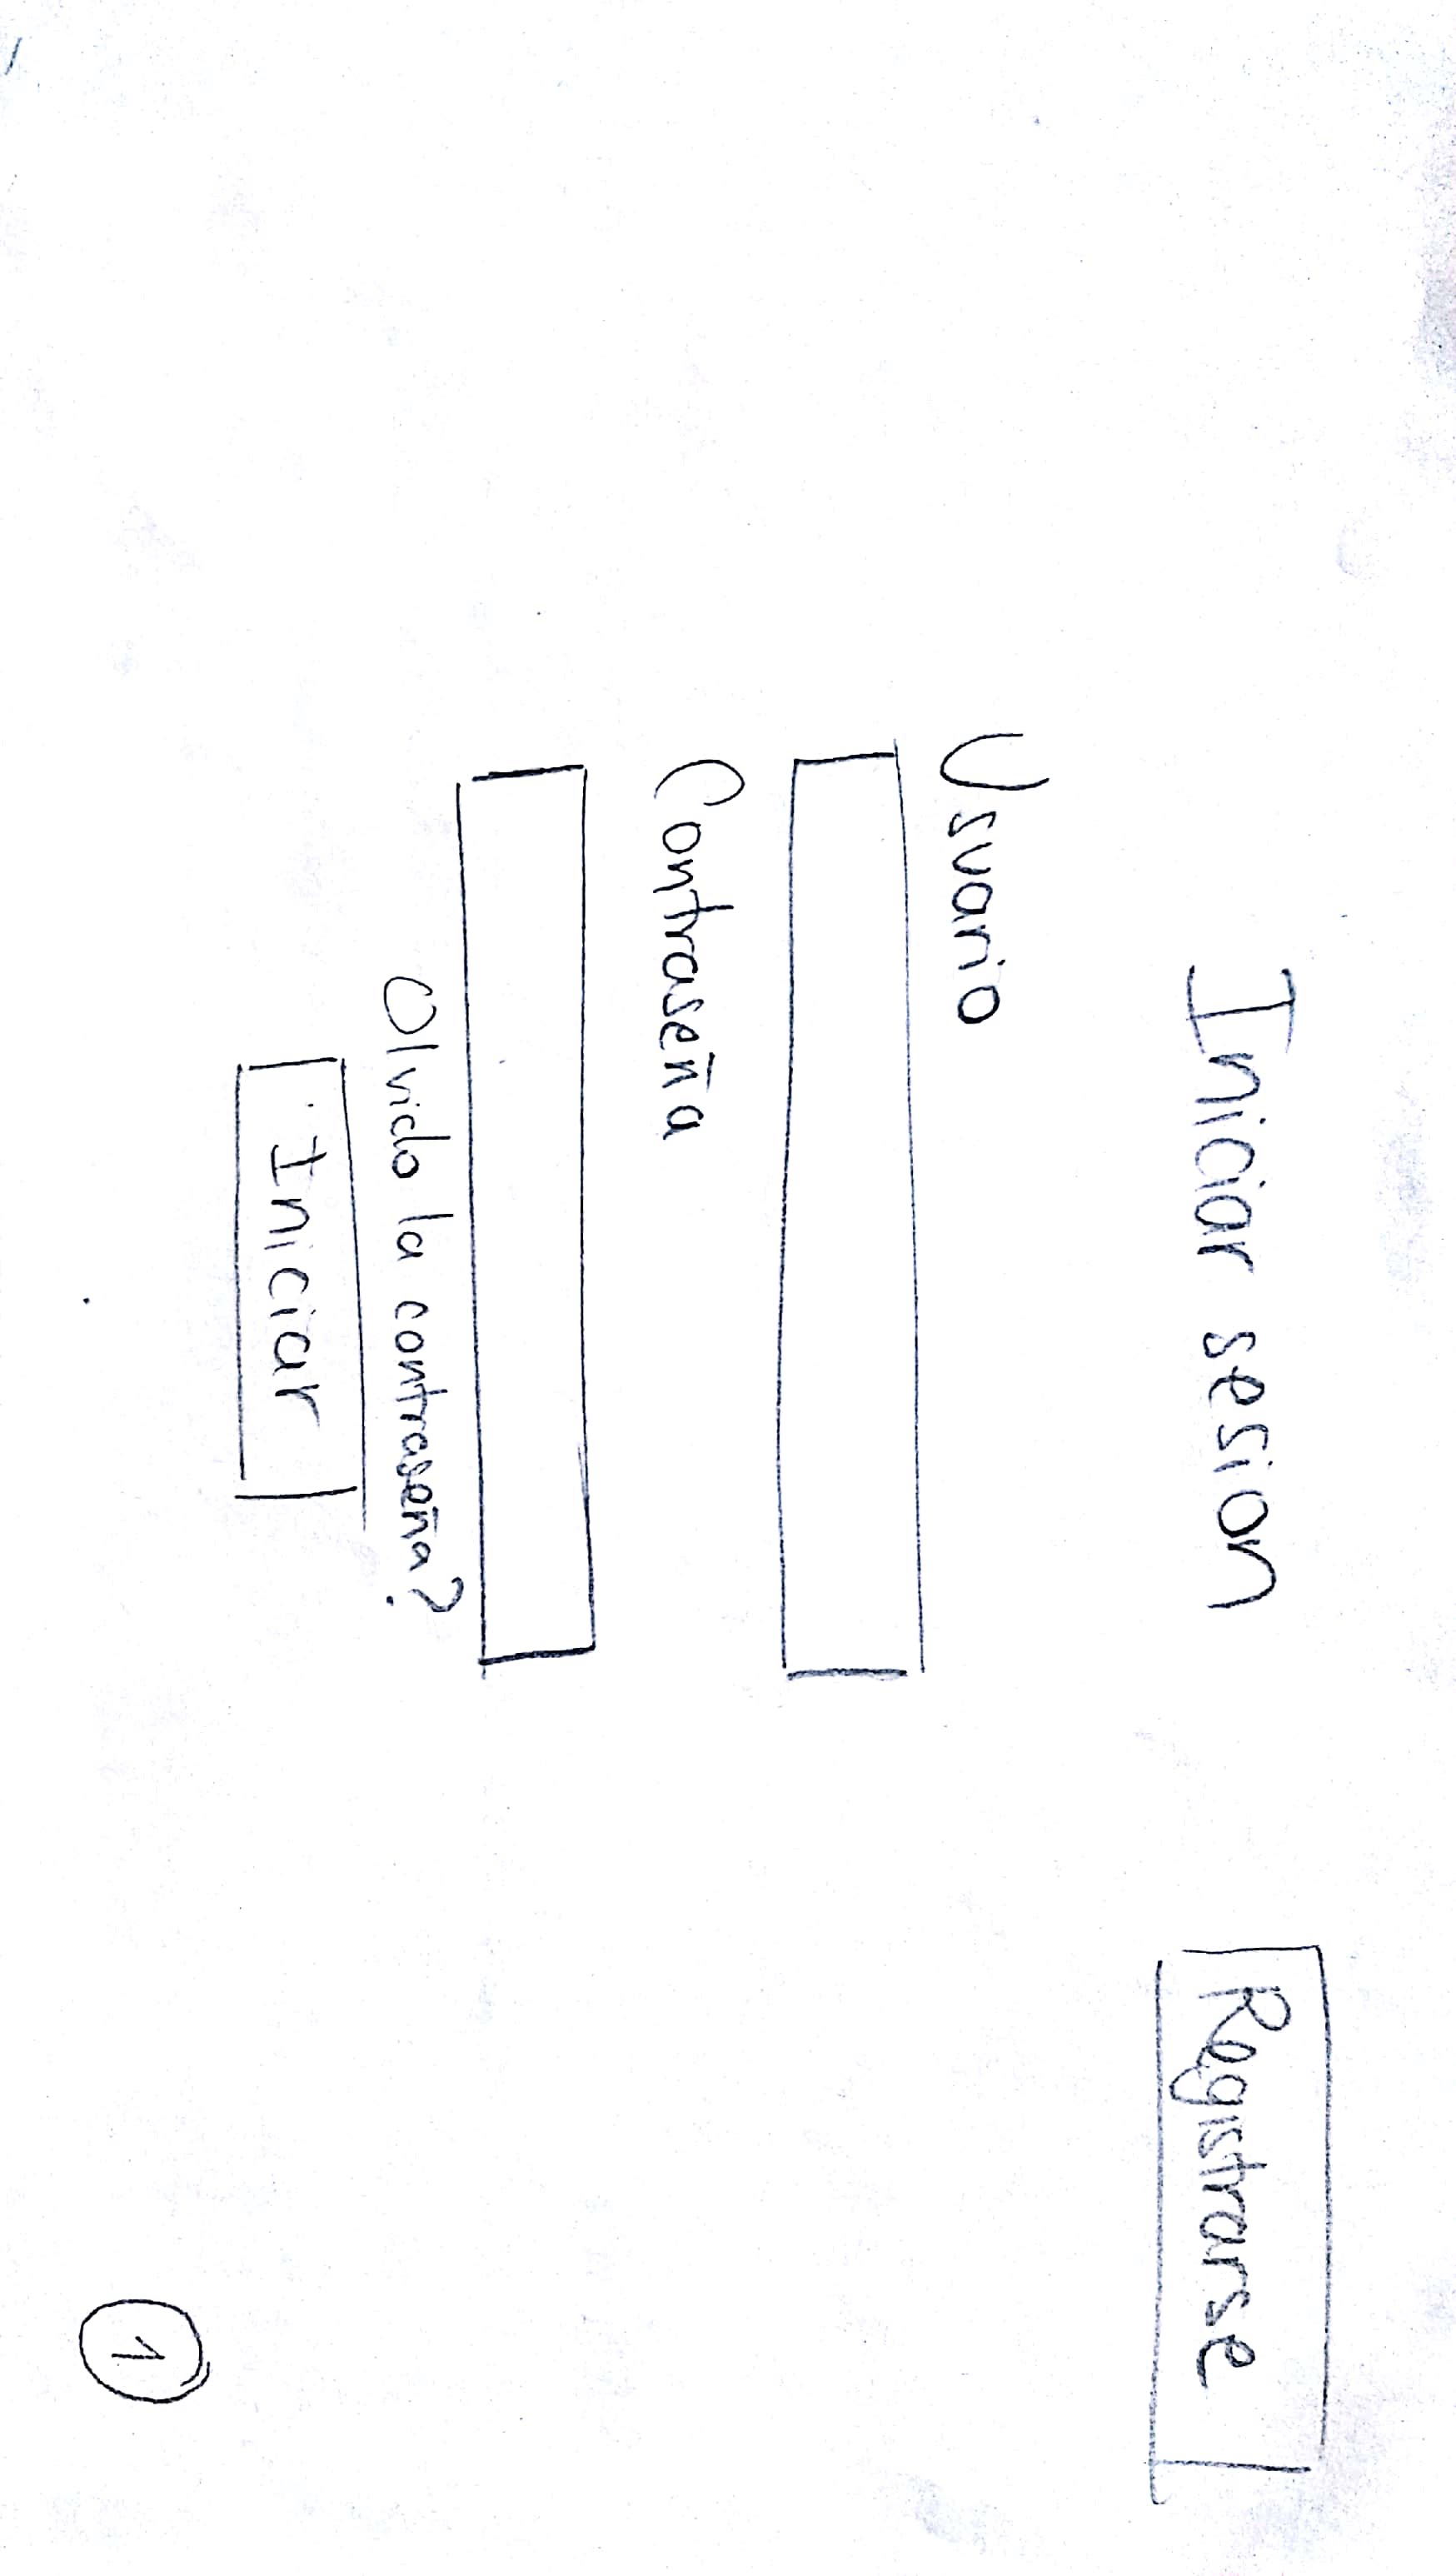 Iniciar sesion
Registrarse
Usuario
Contraseña
Olvido la contraseña?
Iniciar
1